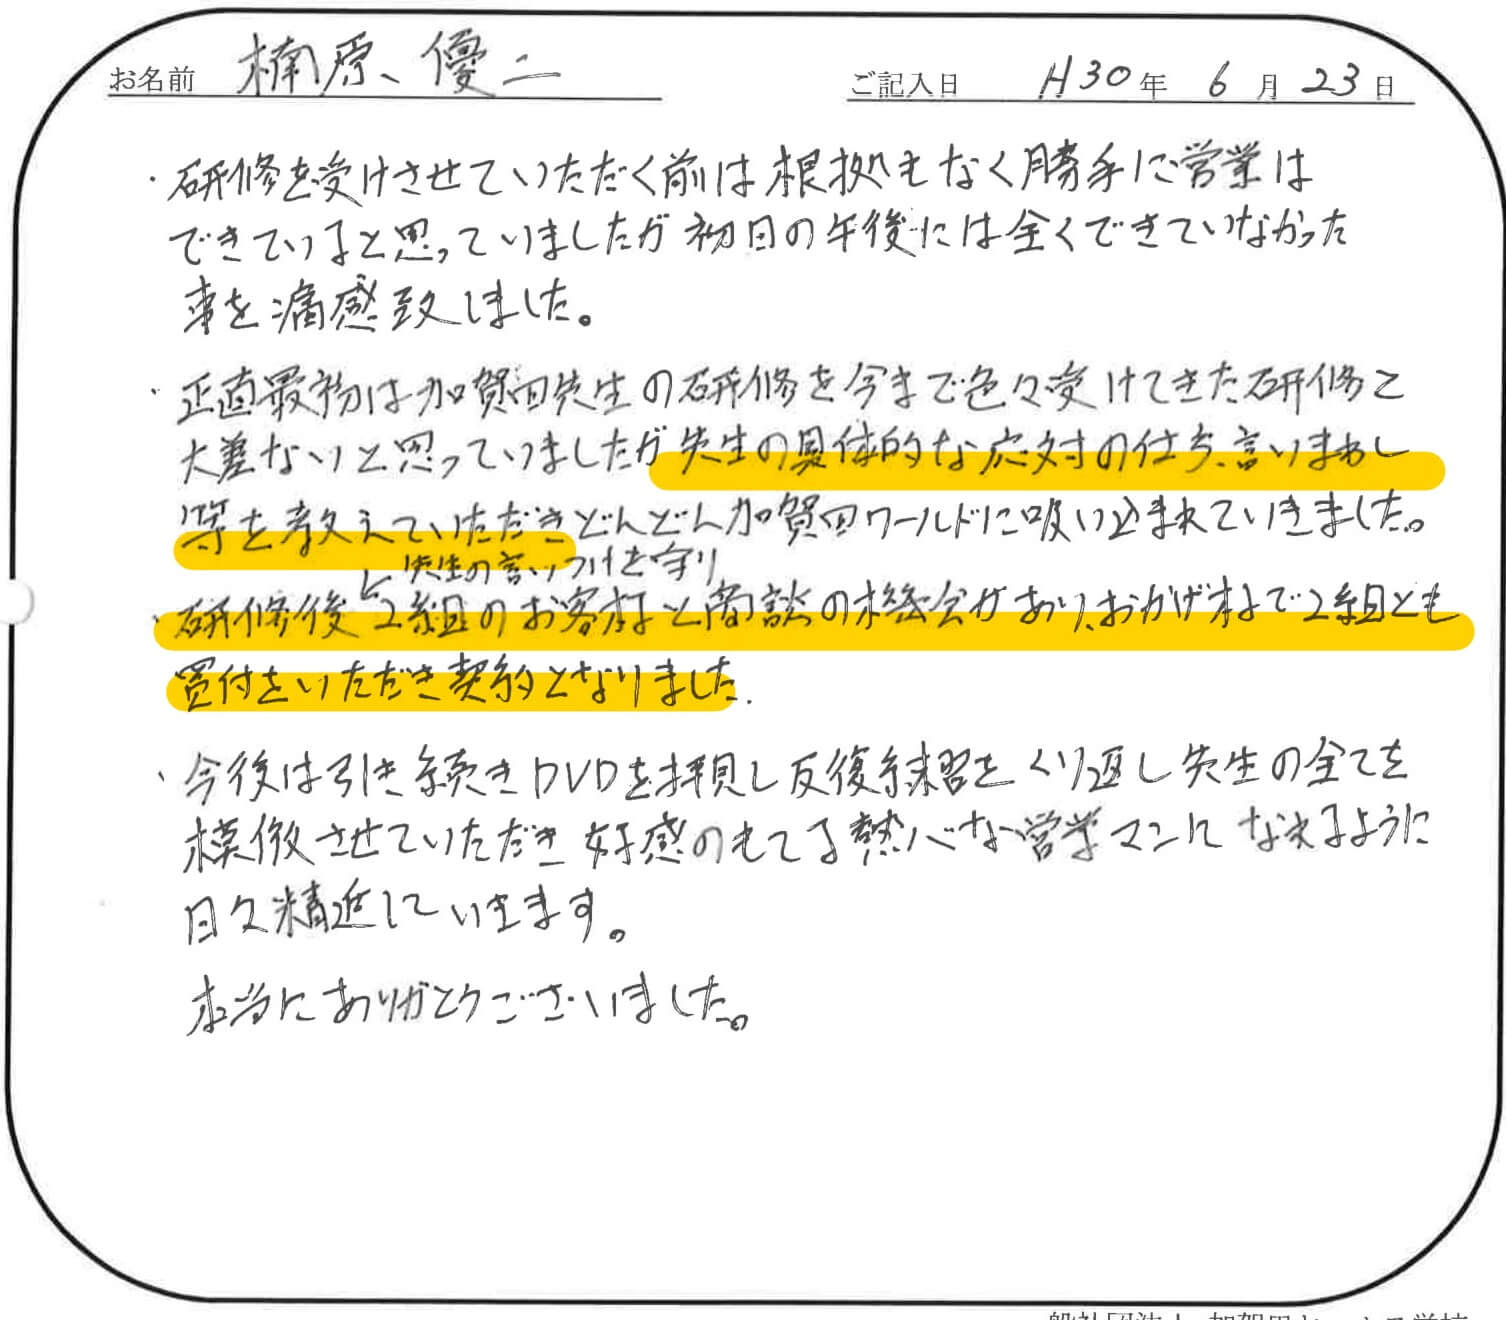 お名前 楠原 優二 ご記入日 H30年 6月23日
・研修を受けさせていただく前は根拠もなく勝手に営業は
できていると思っていましたが初日の午後には全くできていなかった
事を痛感致しました。
・正直最初は加賀田先生の研修を今まで色々受けてきた研修と
大差ないと思っていましたが先生の具体的な応対の仕方、言いまわし
等を教えていただきどんどん加賀田ワールドに吸い込まれていきました。
先生の言いつけを守り
・研修後2組のお客様と商談の機会があり、おかげ様で2組とも
買付をいただき契約となりました.
、今後は引き続きDVDを拝見し反復練習をくり返し先生の全てを
模倣させていただき好感のもてる熱心な営業マンになれるように
日々精進していきます。
本当にありがとうございました。